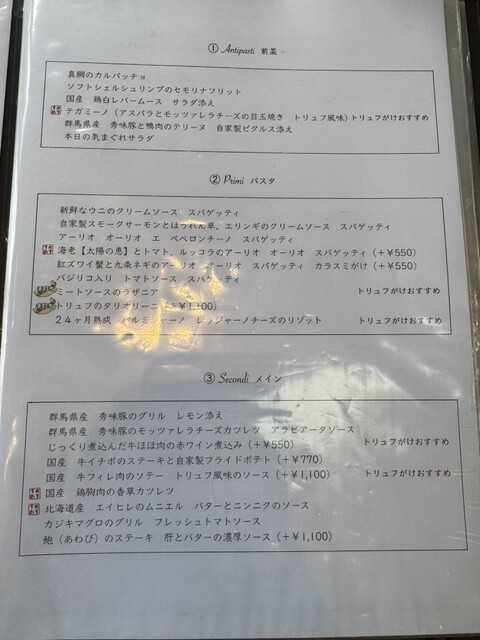 ① Antipasti 前菜
真鯛のカルパッチョ
ソフトシェルシュリンプのセモリナフリット
国産 鶏白レバームース サラダ添え
テガミーノ（アスパラとモッツァレラチーズの目玉焼き トリュフ風味）トリュフがけおすすめ
群馬県産 秀味豚と鴨肉のテリーヌ 自家製ピクルス添え
本日の気まぐれサラダ
② Primi パスタ
新鮮なウニのクリームソース スパゲッティ
自家製スモークサーモンとほうれん草、エリンギのクリームソース スパゲッティ
アーリオ オーリオ エ ペペロンチーノ スパゲッティ
海老【太陽の恵】とトマト、ルッコラのアーリオ オーリオ スパゲッティ（＋￥550）
紅ズワイ蟹と九条ネギのアーリオ オーリオ スパゲッティ カラスミがけ（＋￥550）
バジリコ入り トマトソース スパゲッティ
ミートソースのラザニア トリュフがけおすすめ
トリュフのタリオリーニ ￥1,100）
２４ヶ月熟成 パルミジャーノ レッジャーノチーズのリゾット トリュフがけおすすめ
③ Secondi メイン
群馬県産 秀味豚のグリル レモン添え
群馬県産 秀味豚のモッツァレラチーズカツレツ アラビアータソース
じっくり煮込んだ牛ほほ肉の赤ワイン煮込み（＋￥550） トリュフがけおすすめ
国産 牛イチボのステーキと自家製フライドポテト（＋￥770）
国産 牛フィレ肉のソテー トリュフ風味のソース（＋￥1,100） トリュフがけおすすめ
国産 鶏胸肉の香草カツレツ
北海道産 エイヒレのムニエル バターとニンニクのソース
カジキマグロのグリル フレッシュトマトソース
鮑（あわび）のステーキ 肝とバターの濃厚ソース（＋￥1,100）